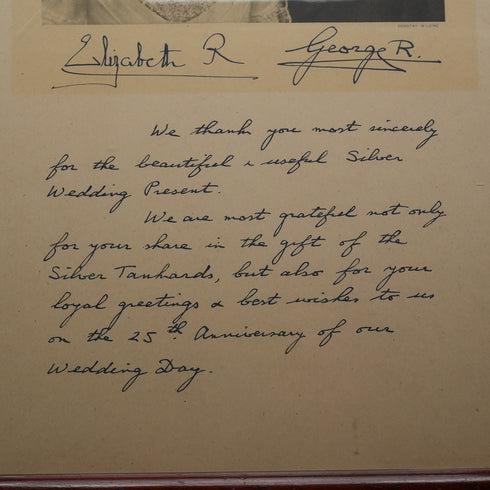 DOROTHY WILDING
Elizabeth R George R.
We thank you most sincerely
for the beautiful & useful Silver
Wedding Present.
We are most grateful not only
for your share in the gift of the
Silver Tankards, but also for your
loyal greetings & best wishes to us
on the 25th Anniversary of our
Wedding Day.